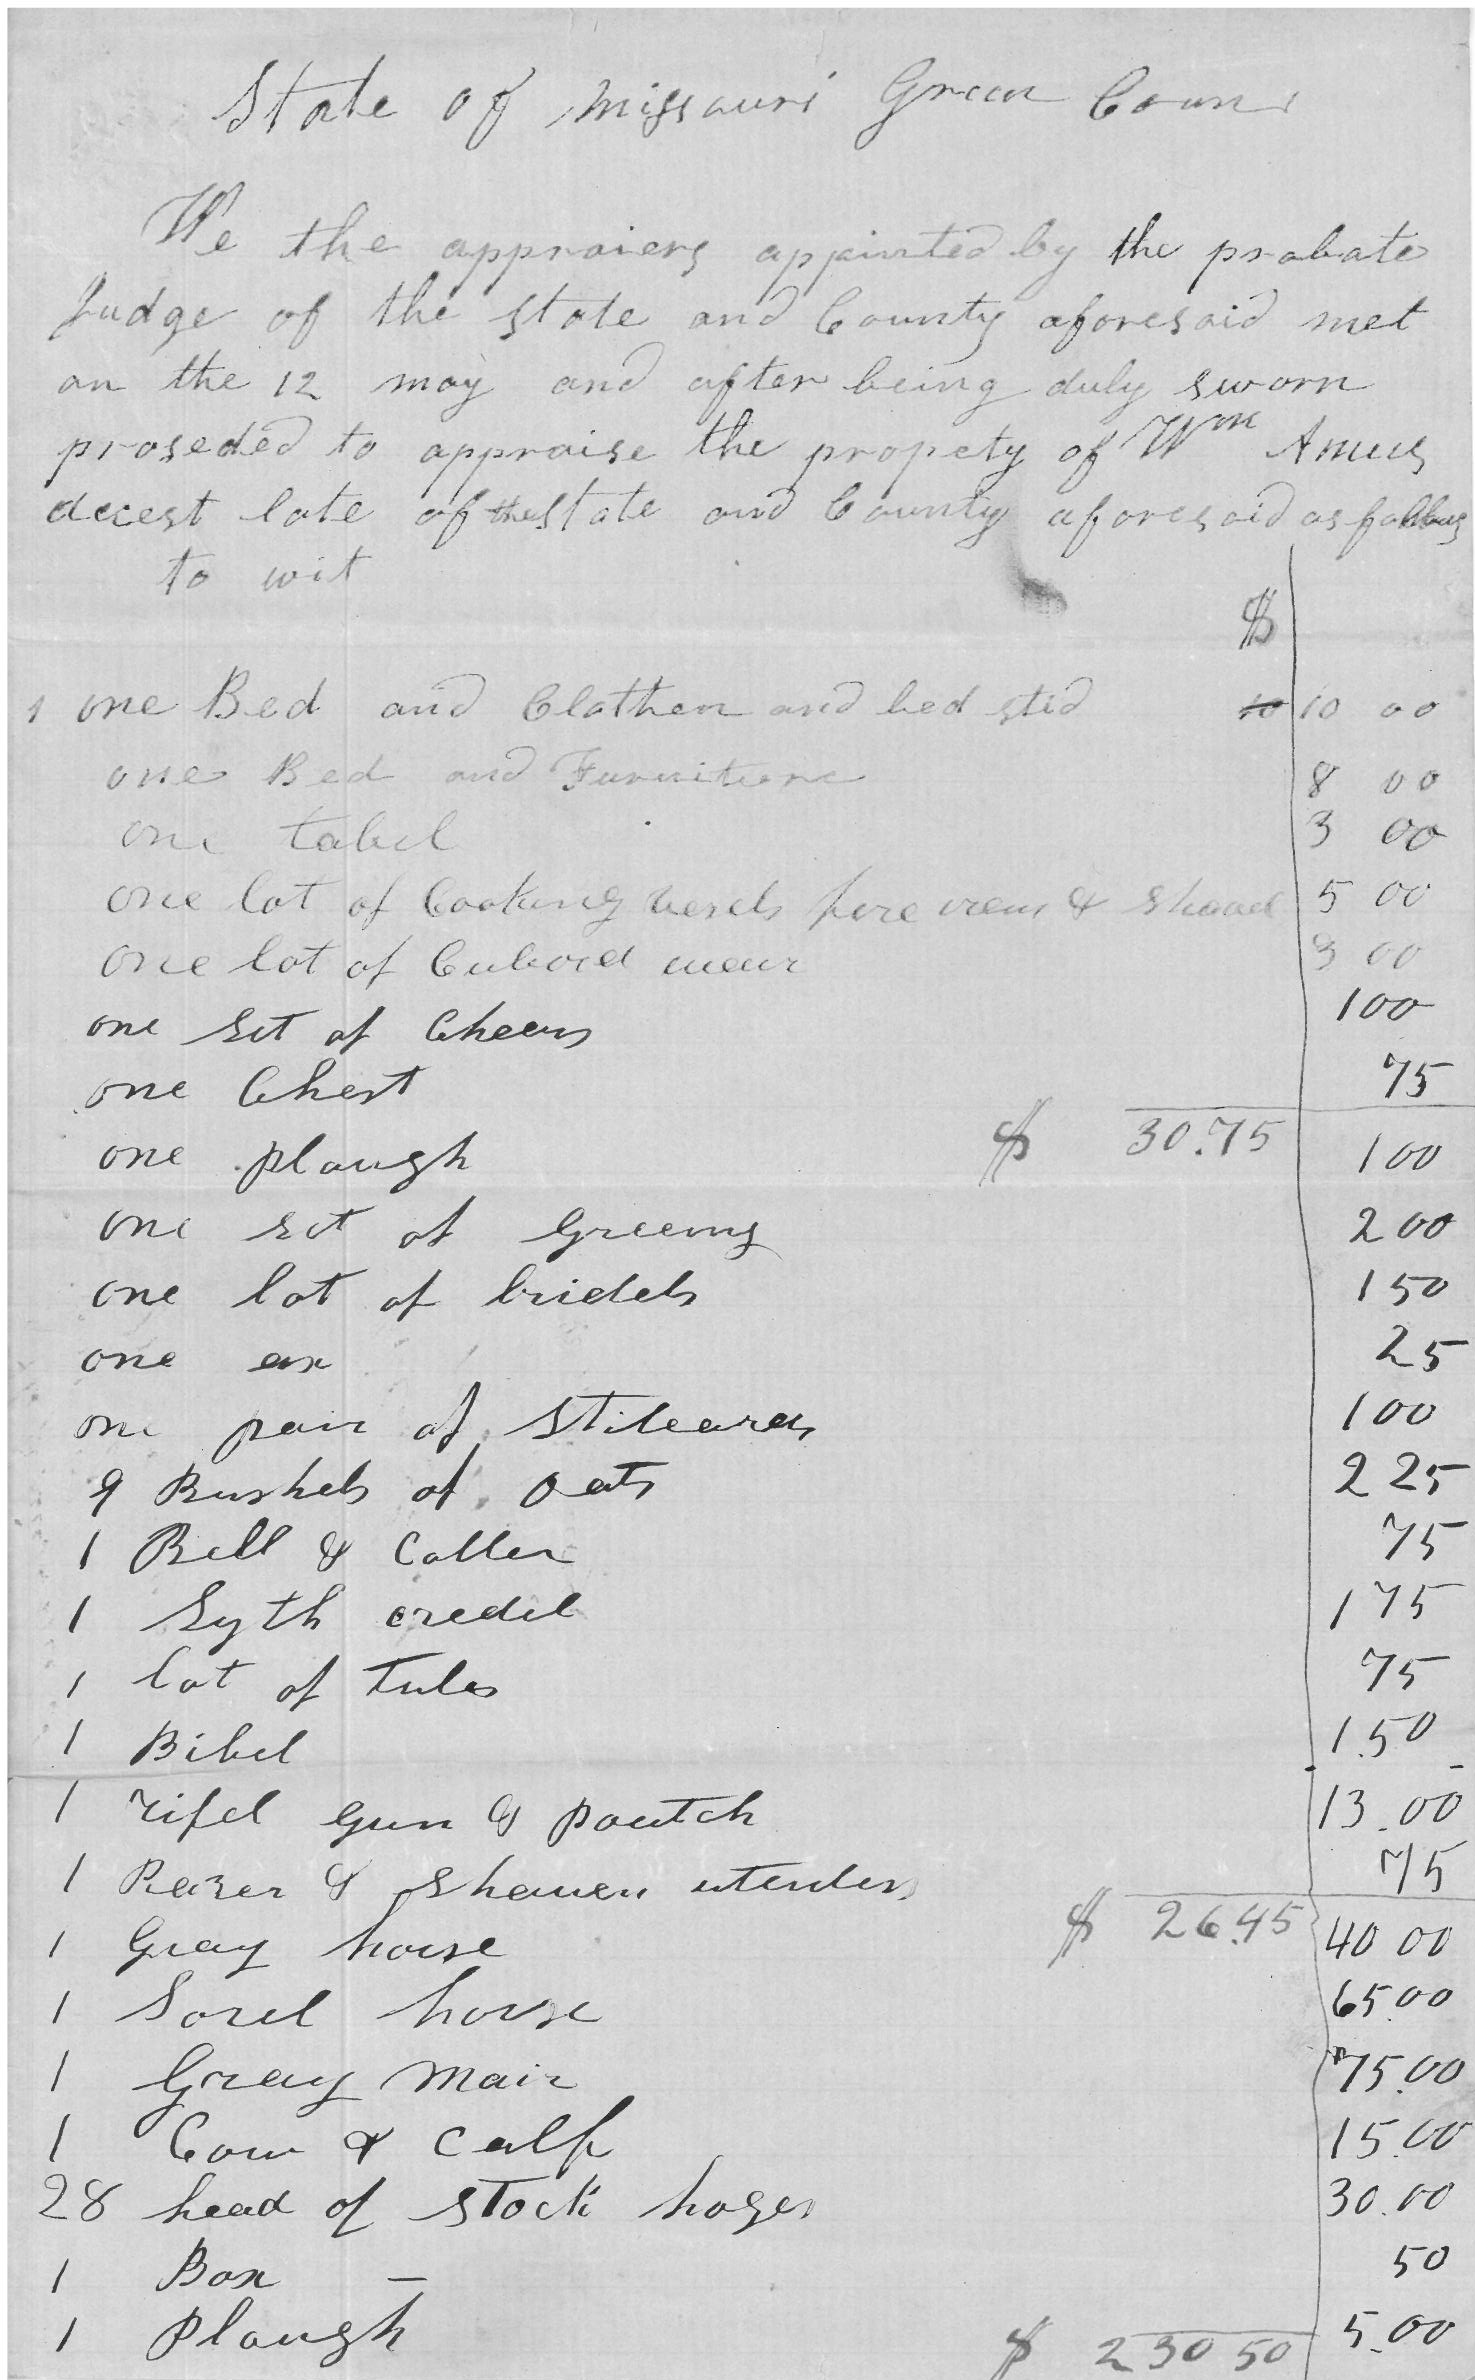 State of Missouri Green Coun
We the appraiers appointed by the probate
Judge of the State and County aforesaid met
on the 12 may and after being duly sworn
proseded to appraise the propety of Wm Amus
decest late of the State and County aforesaid as follows
to wit
$
1 one Bed and Clothen and bed sted 10 10 00
one Bed and Furniture 8 00
one tabel 3 00
one lot of Cooking vesels fire irons & shovel 5 00
one lot of Cubord wear 3 00
one set of Cheers 100
one Chest 75
$ 30.75
one plough 100
one set of Greems 200
one lot of bridels 150
one ax 25
one pair of Stileards 100
9 Bushels of Oats 225
1 Bell & Coller 75
1 Syth credel 175
1 lot of Tules 75
1 Bibel 1.50
1 rifel gun & poutch 13.00
1 Razer & Shaven utensles 75
$ 26.45
1 Gray horse 40 00
1 Sorel horse 65.00
1 Gray mair 75.00
1 Cow & Calf 15.00
28 head of stock hoges 30.00
1 Box – 50
$ 230 50
1 Plough 5.00